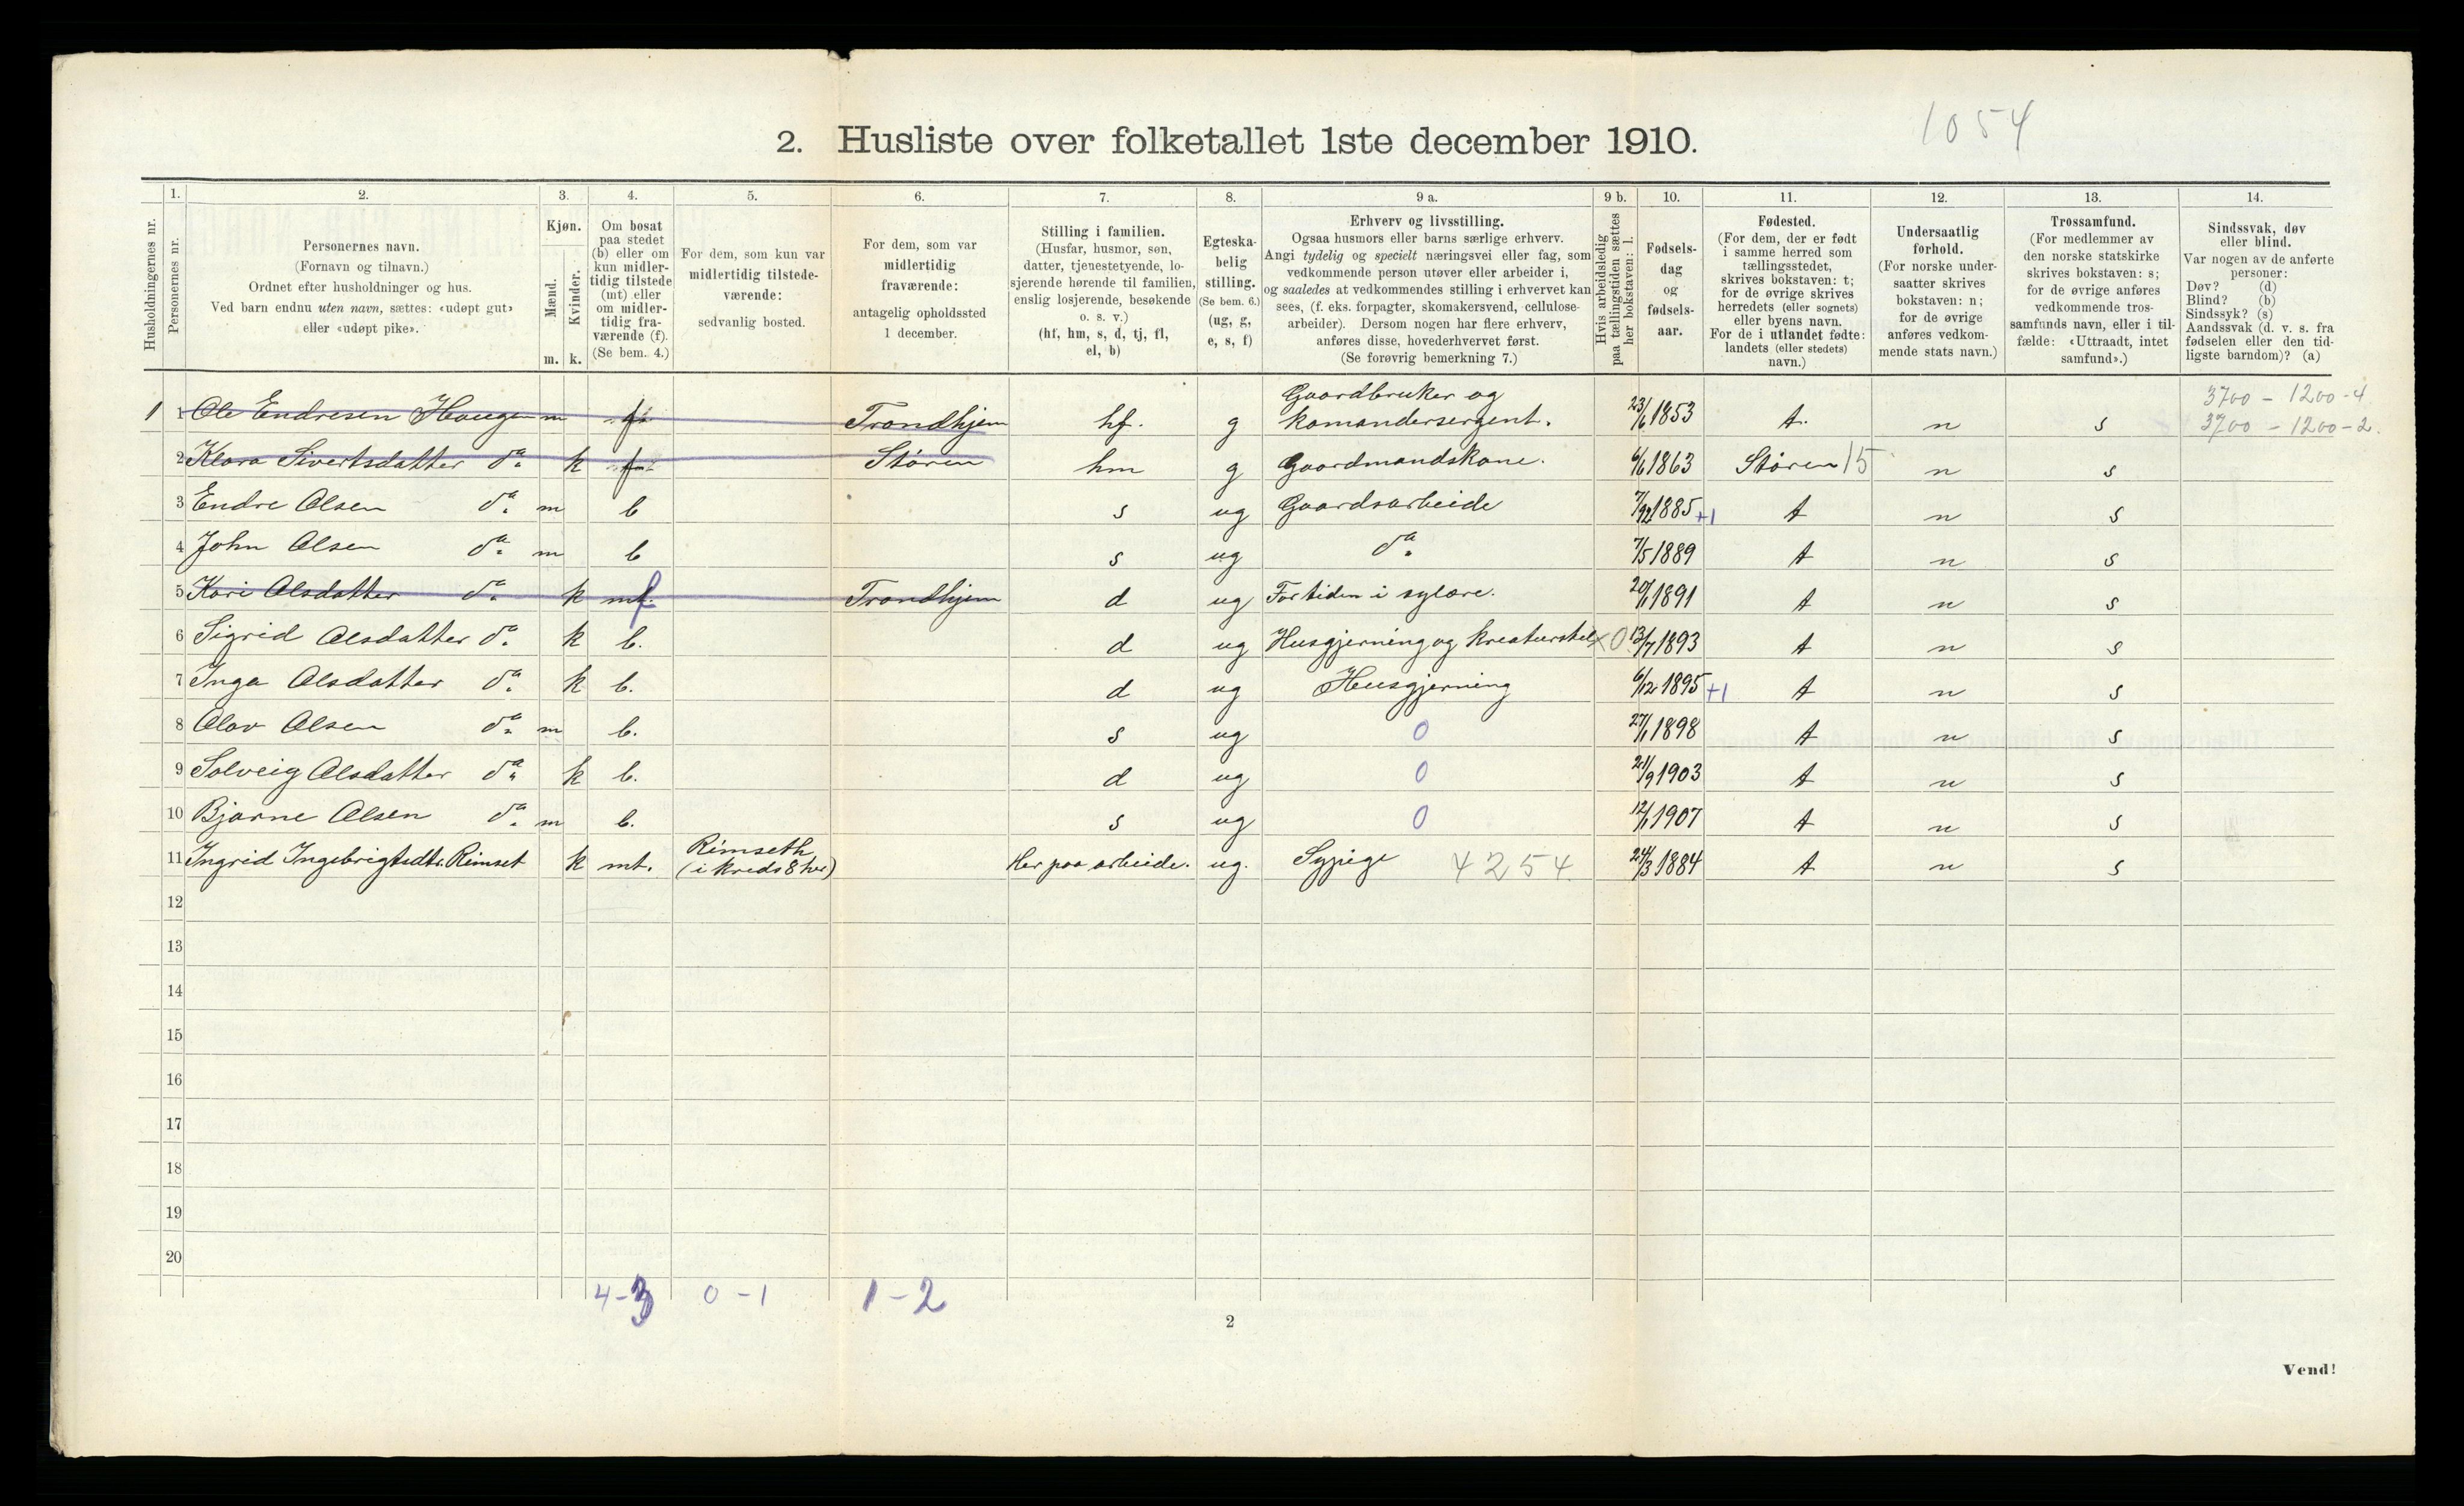 1054
2. Husliste over folketallet 1ste december 1910.
1. 2. 3. 4. 5. 6. 7. 8. 9 a. 9 b. 10. 11. 12. 13. 14.
Husholdningernes nr.
Personernes nr.
Personernes navn.
(Fornavn og tilnavn.)
Ordnet efter husholdninger og hus.
Ved barn endnu uten navn, sættes: «udøpt gut»
eller «udøpt pike».
Kjøn.
Mænd.
Kvinder.
m. k.
Om bosat
paa stedet
(b) eller om
kun midler-
tidig tilstede
(mt) eller
om midler-
tidig fra-
værende (f).
(Se bem. 4.)
For dem, som kun var
midlertidig tilstede-
værende:
sedvanlig bosted.
For dem, som var
midlertidig
fraværende:
antagelig opholdssted
1 december.
Stilling i familien.
(Husfar, husmor, søn,
datter, tjenestetyende, lo-
sjerende hørende til familien,
enslig losjerende, besøkende
o. s. v.)
(hf, hm, s, d, tj, fl,
el, b)
Egteska-
belig
stilling.
(Se bem. 6.)
(ug, g,
e, s, f)
Erhverv og livsstilling.
Ogsaa husmors eller barns særlige erhverv.
Angi tydelig og specielt næringsvei eller fag, som
vedkommende person utøver eller arbeider i,
og saaledes at vedkommendes stilling i erhvervet kan
sees, (f. eks. forpagter, skomakersvend, cellulose-
arbeider). Dersom nogen har flere erhverv,
anføres disse, hovederhvervet først.
(Se forøvrig bemerkning 7.)
Hvis arbeidsledig
paa tællingstiden sættes
her bokstaven: l.
Fødsels-
dag
og
fødsels-
aar.
Fødested.
(For dem, der er født
i samme herred som
tællingsstedet,
skrives bokstaven: t;
for de øvrige skrives
herredets (eller sognets)
eller byens navn.
For de i utlandet fødte:
landets (eller stedets)
navn.)
Undersaatlig
forhold.
(For norske under-
saatter skrives
bokstaven: n;
for de øvrige
anføres vedkom-
mende stats navn.)
Trossamfund.
(For medlemmer av
den norske statskirke
skrives bokstaven: s;
for de øvrige anføres
vedkommende tros-
samfunds navn, eller i til-
fælde: «Uttraadt, intet
samfund».)
Sindssvak, døv
eller blind.
Var nogen av de anførte
personer:
Døv? (d)
Blind? (b)
Sindssyk? (s)
Aandssvak (d. v. s. fra
fødselen eller den tid-
ligste barndom)? (a)
3700 - 1200-4
1 1 Ole Endresen Haugen m f Trondhjem hf. g Gaardbruker og komandersergent. 23/6 1853 t. n s 3700 - 1200-2.
2 Klara Sivertsdatter do. k f Støren hm g Gaardmandskone. 6/6 1863 Støren 15 n s
3 Endre Olsen do. m b s ug Gaardsarbeide 7/12 1885 +1 t n s
4 John Olsen do. m b s ug do. 7/5 1889 t n s
5 Kari Olsdatter do. k mt. f Trondhjem d ug For tiden i sylære. 20/1 1891 t n s
6 Sigrid Olsdatter do. k b. d ug Husgjerning og kreaturstel x0 13/7 1893 t n s
7 Inga Olsdatter do. k b. d ug Husgjerning 6/12 1895 +1 t n s
8 Olav Olsen do. m b. s ug 0 27/1 1898 t n s
9 Solveig Olsdatter do. k b. d ug 0 21/9 1903 t n s
10 Bjarne Olsen do. m b. s ug 0 12/1 1907 t n s
11 Ingrid Ingebrigtsdtr. Rimset k mt. Rimseth (i kreds 8 her) Her paa arbeide. ug. Sypige 4254. 24/3 1884 t n s
12
13
14
15
16
17
18
19
20
4-3 0-1 1-2
2
Vend!